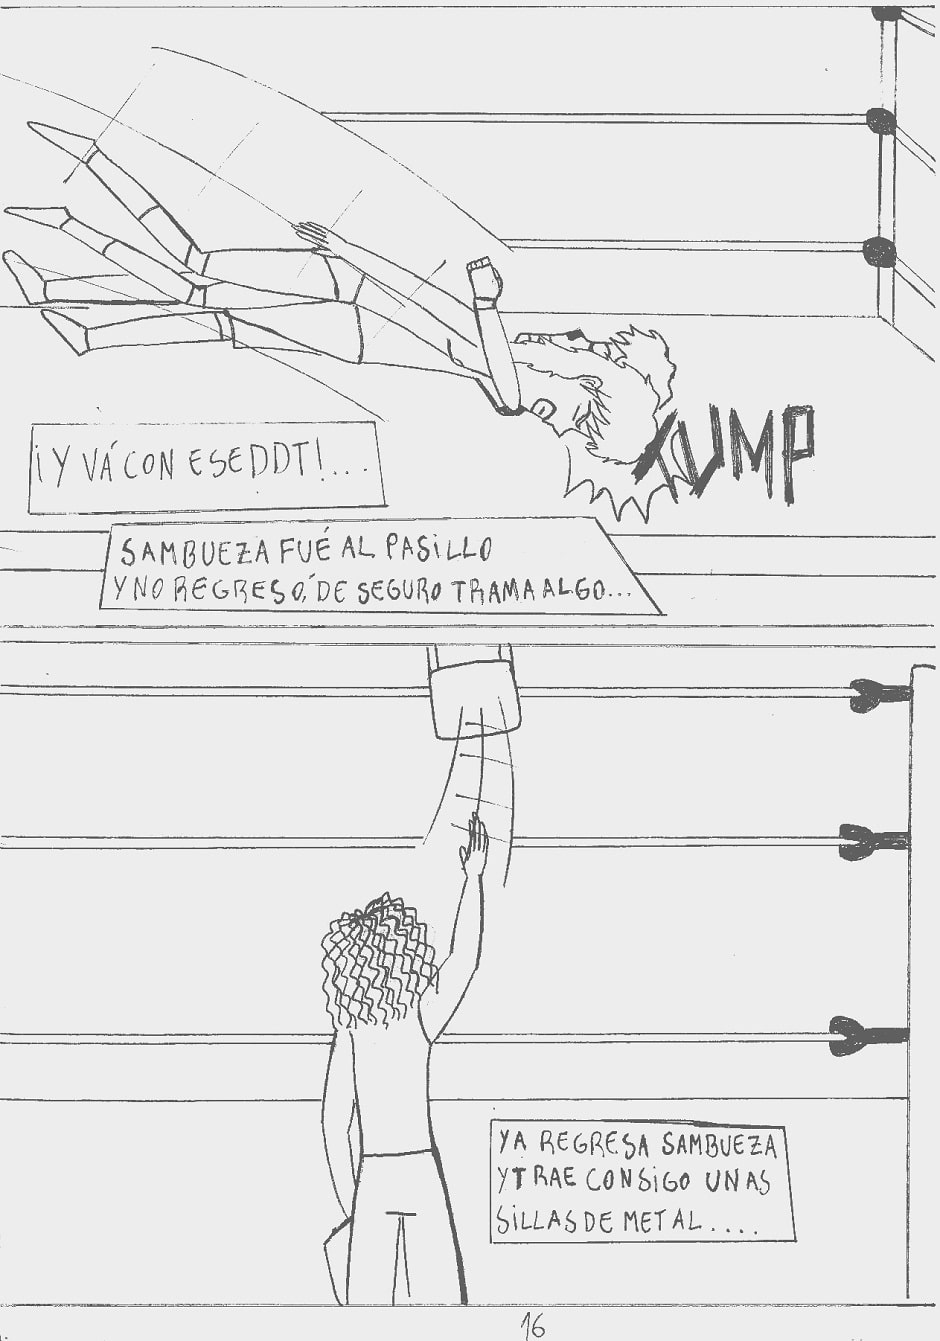 ¡Y VÁ CON ESE DDT!...
TUMP
SAMBUEZA FUÉ AL PASILLO
Y NO REGRESÓ, DE SEGURO TRAMA ALGO...
YA REGRESA SAMBUEZA
Y TRAE CONSIGO UNAS
SILLAS DE METAL....
16